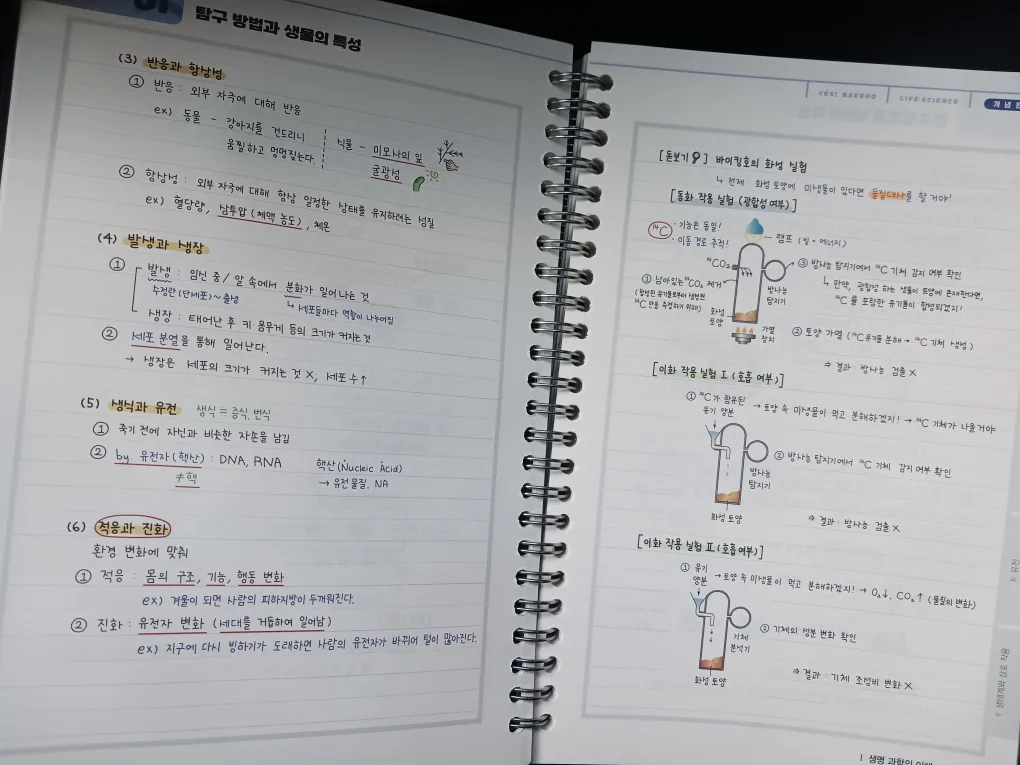 01
탐구 방법과 생물의 특성
(3) 반응과 항상성
① 반응 : 외부 자극에 대해 반응
ex) 동물 - 강아지를 건드리니
움찔하고 멍멍짖는다.
식물 - 미모사의 잎
굴광성
② 항상성 : 외부 자극에 대해 항상 일정한 상태를 유지하려는 성질
ex) 혈당량, 삼투압 (체액 농도), 체온
(4) 발생과 생장
① 발생 : 임신 중 / 알 속에서 분화가 일어나는 것
수정란 (단세포) ~ 출생
↳ 세포들마다 역할이 나누어짐
생장 : 태어난 후 키·몸무게 등의 크기가 커지는 것
② 세포 분열을 통해 일어난다.
→ 생장은 세포의 크기가 커지는 것 X, 세포 수↑
(5) 생식과 유전
생식 = 증식, 번식
① 죽기 전에 자신과 비슷한 자손을 남김
② by. 유전자 (핵산) : DNA, RNA
≠핵
핵산(Nucleic Acid)
→ 유전물질, NA
(6) 적응과 진화
환경 변화에 맞춰
① 적응 : 몸의 구조, 기능, 행동 변화
ex) 겨울이 되면 사람의 피하지방이 두꺼워진다.
② 진화 : 유전자 변화 (세대를 거듭하여 일어남)
ex) 지구에 다시 빙하기가 도래하면 사람의 유전자가 바뀌어 털이 많아진다.
YES! BAEKHO
LIFE SCIENCE
개념 완
[돋보기] 바이킹호의 화성 실험
↳ 전제 : 화성 토양에 미생물이 있다면 물질대사를 할 거야!
[동화 작용 실험 (광합성 여부)]
¹⁴C
· 기능은 동일!
· 이동 경로 추적!
램프 (빛 = 에너지)
¹⁴CO₂
① 남아있는 ¹⁴CO₂ 제거
(합성된 유기물로부터 생성된
¹⁴C 만을 측정하기 위해)
화성
토양
방사능
탐지기
가열
장치
③ 방사능 탐지기에서 ¹⁴C 기체 감지 여부 확인
↳ 만약, 광합성 하는 생물이 토양에 존재한다면,
¹⁴C 를 포함한 유기물이 합성되겠지!
② 토양 가열 (¹⁴C 유기물 분해 → ¹⁴C 기체 생성)
⇒ 결과 : 방사능 검출 X
[이화 작용 실험 I (호흡 여부)]
① ¹⁴C가 함유된
유기 양분
→ 토양 속 미생물이 먹고 분해하겠지! → ¹⁴C 기체가 나올거야
② 방사능 탐지기에서 ¹⁴C 기체 감지 여부 확인
방사능
탐지기
화성 토양
⇒ 결과 : 방사능 검출 X
[이화 작용 실험 II (호흡 여부)]
① 유기
양분
→ 토양 속 미생물이 먹고 분해하겠지! → O₂↓, CO₂↑ (물질의 변화)
② 기체의 성분 변화 확인
기체
분석기
화성 토양
⇒ 결과 : 기체 조성비 변화 X
II 유전
V 생태계와 상호 작용
I 생명 과학의 이해